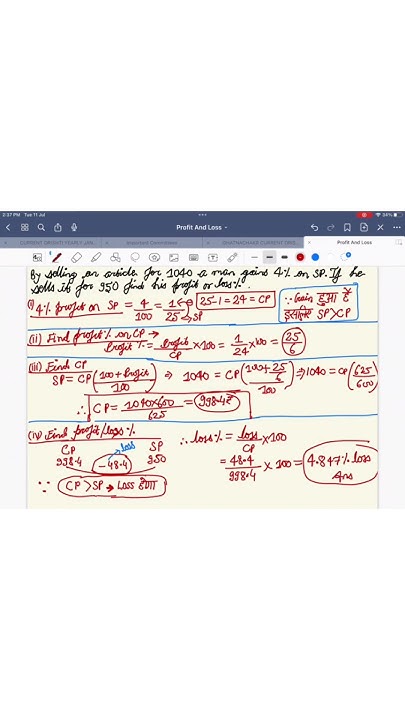 3:37 PM Tue 11 Jul
34%
Profit And Loss
CURRENT DRISHTI YEARLY JAN...
Important Committees
GHATNACHAKR CURRENT DRIS...
Profit And Loss
By selling an article for 1040 a man gains 4% on SP. If he
sells it for 950 find his profit or loss%.
(i) 4% profit on SP = 4/100 = 1/25 → SP 25-1 = 24 = CP
∵ Gain हुआ है
इसलिए SP>CP
(ii) Find profit% on CP →
Profit% = Profit/CP × 100 = 1/24 × 100 = 25/6
(iii) Find CP
SP = CP (100 + Profit/100) ⇒ 1040 = CP (100 + 25/6/100) ⇒ 1040 = CP (625/600)
∴ CP = 1040×600/625 = 998.4₹
(iv) Find profit/loss %
CP loss SP
998.4 -48.4 950
∵ CP > SP → Loss होगा
∴ loss% = loss/CP × 100
= 48.4/998.4 × 100 = 4.847% loss
Ans